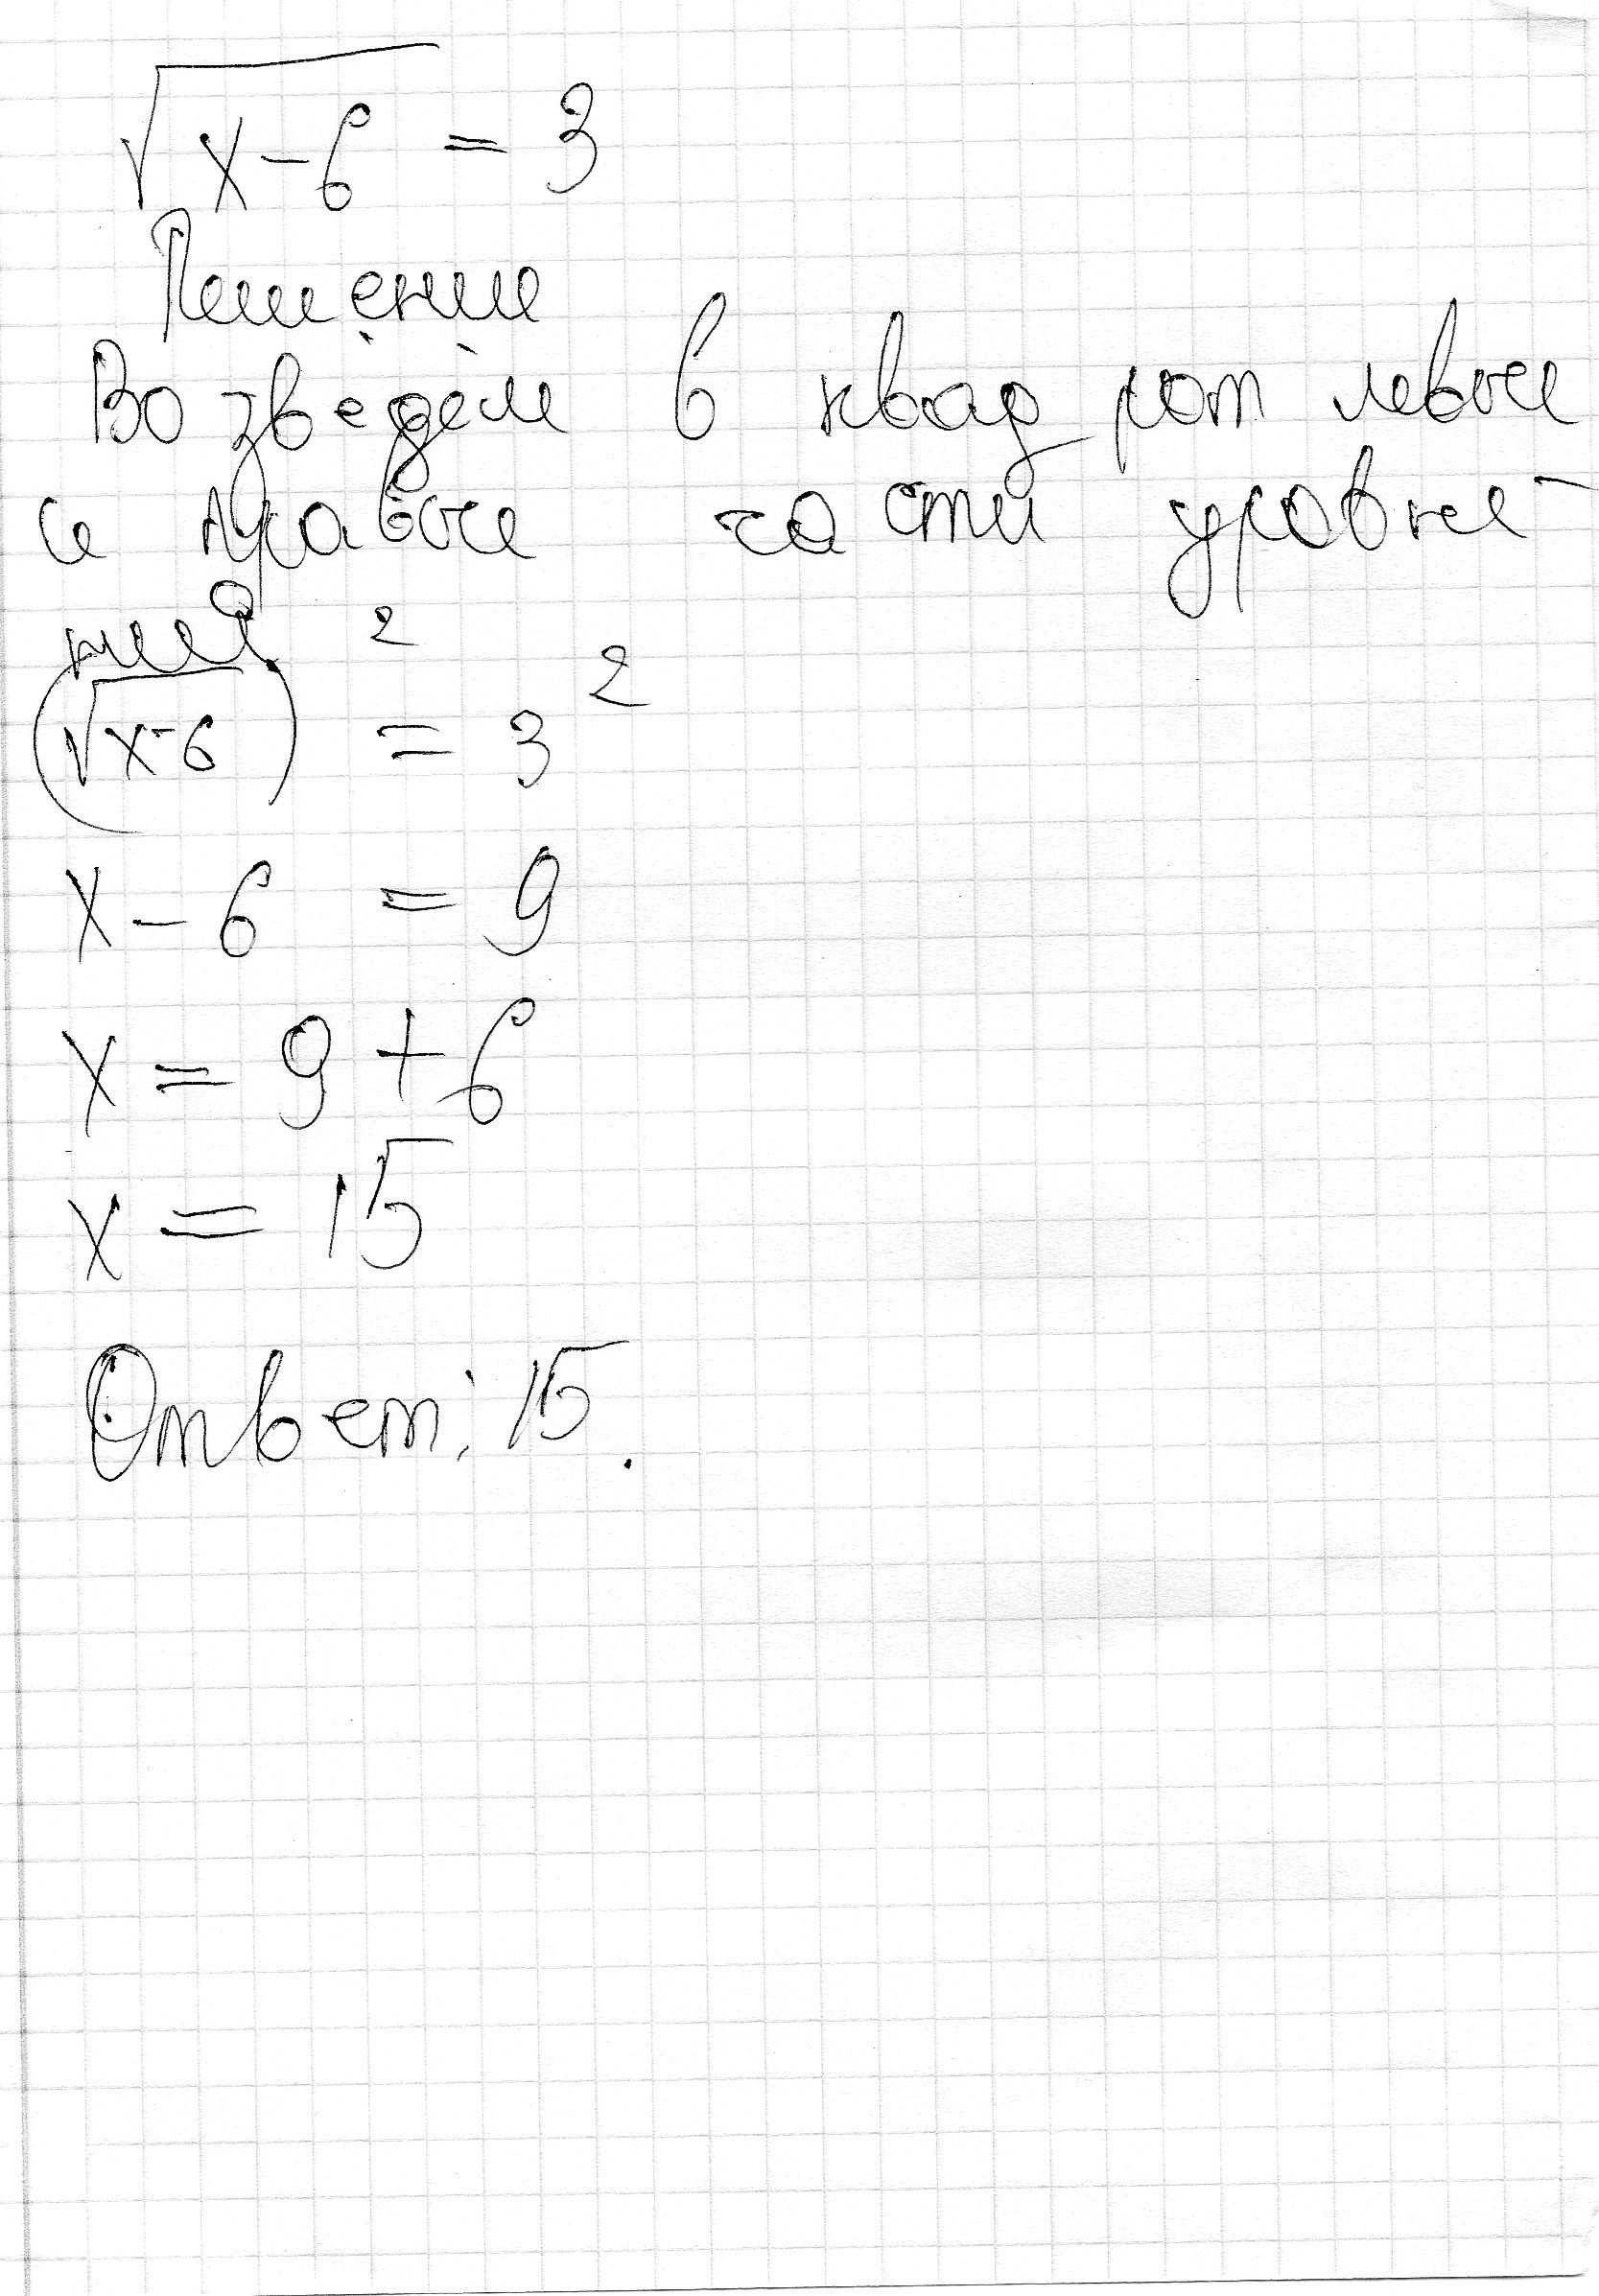 √x-6 = 3
Решение
Возведём в квадрат левые
и правые части уровне-
ний
(√x-6)² = 3²
x - 6 = 9
x = 9 + 6
x = 15
Ответ: 15.